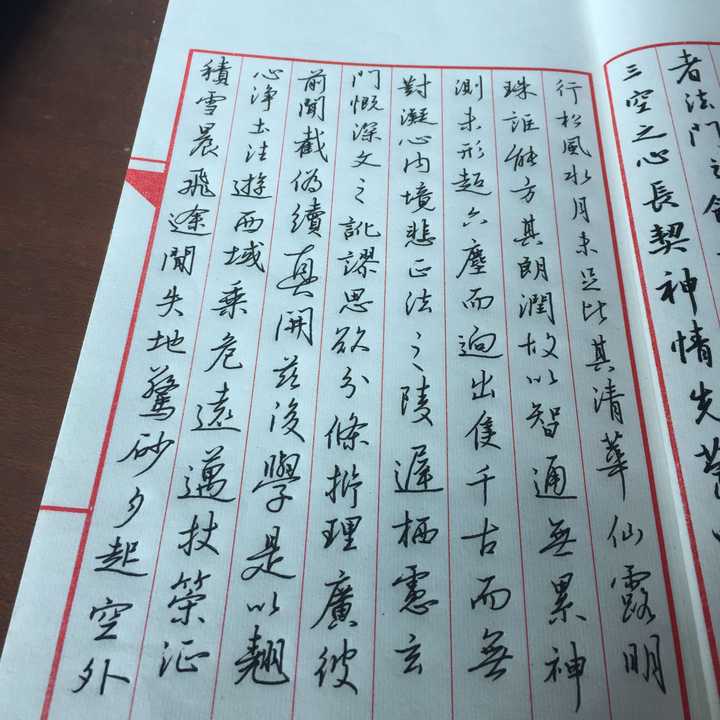 者法門之
三空之心長契神情先
行松風水月未足比其清華仙露明
珠詎能方其朗潤故以智通無累神
測未形超六塵而迥出隻千古而無
對凝心內境悲正法之陵遲栖慮玄
門慨深文之訛謬思欲分條析理廣彼
前聞截偽續真開茲後學是以翹
心淨土往遊西域乘危遠邁杖策征
積雪晨飛途間失地驚砂夕起空外